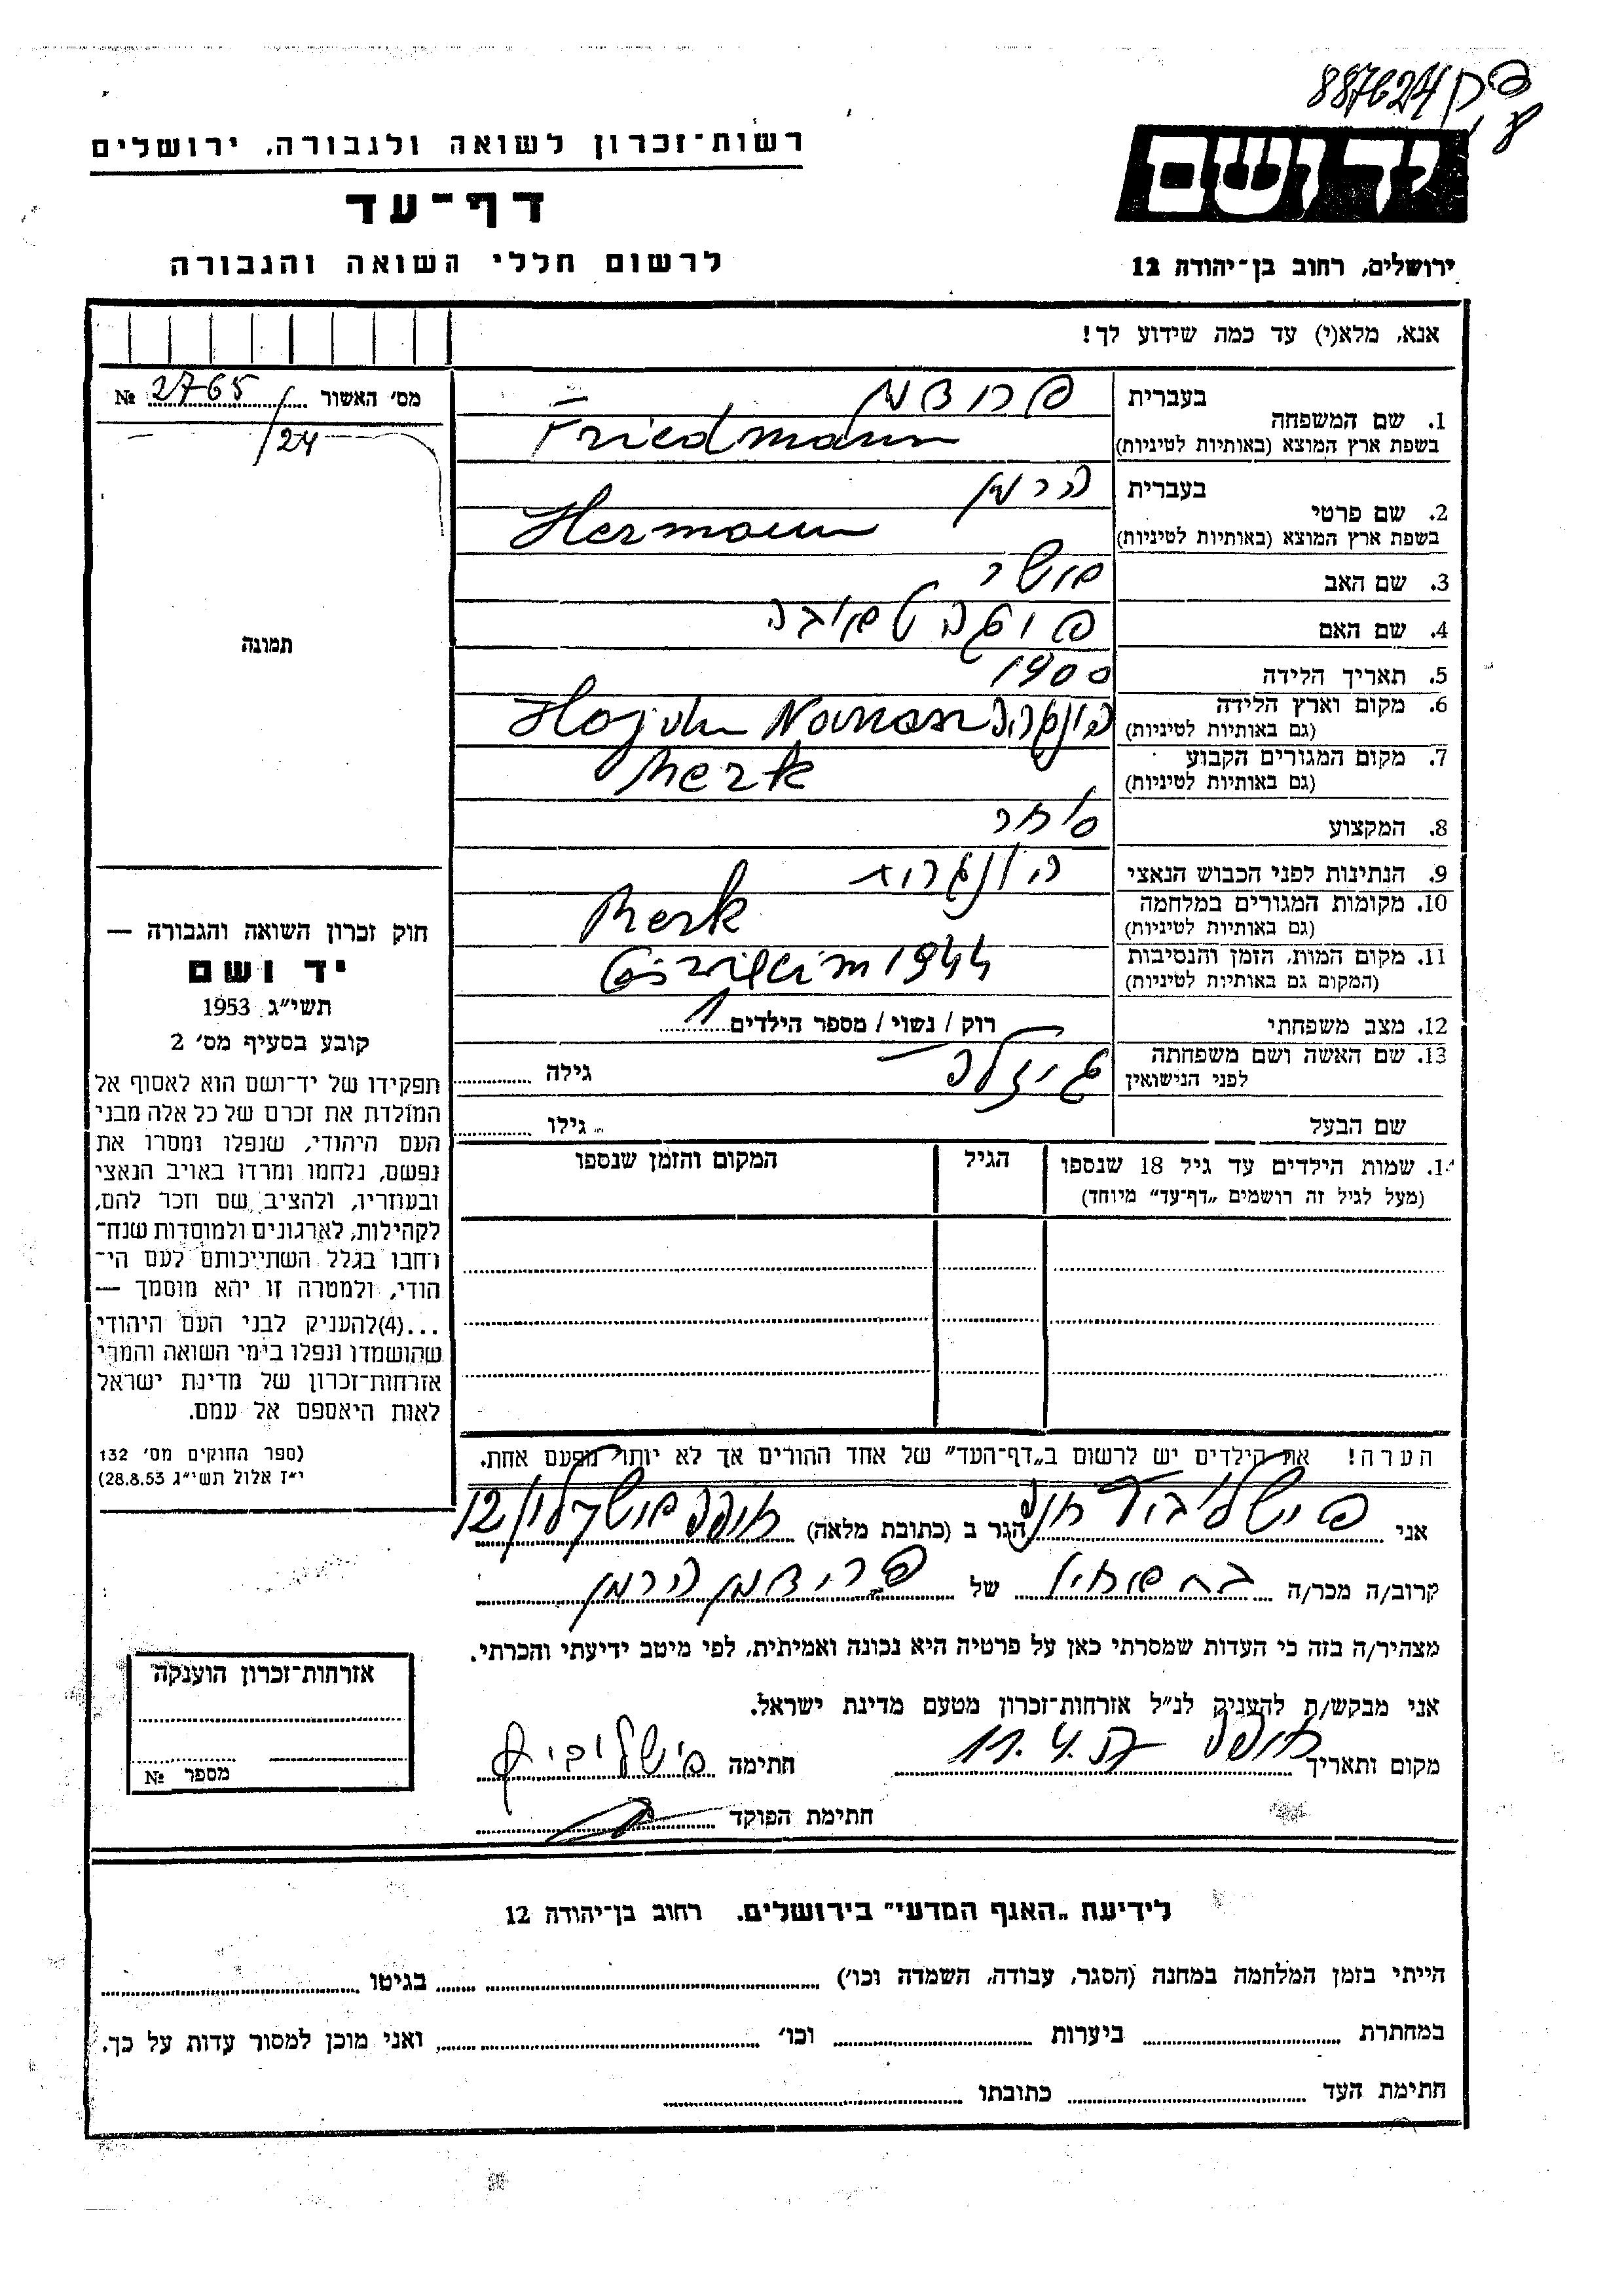 887624
רשות־זכרון לשואה ולגבורה, ירושלים
יד ושם
דף־עד
לרשום חללי השואה והגבורה
ירושלים, רחוב בן־יהודה 12
אנא, מלא(י) עד כמה שידוע לך!
מס׳ האשור № 2765/24
1. שם המשפחה בעברית
בשפת ארץ המוצא (באותיות לטיניות) Friedmann
2. שם פרטי בעברית הרמן
בשפת ארץ המוצא (באותיות לטיניות) Hermann
3. שם האב
4. שם האם
5. תאריך הלידה 1900
6. מקום וארץ הלידה
(גם באותיות לטיניות)
7. מקום המגורים הקבוע
(גם באותיות לטיניות) Merk
8. המקצוע סוחר
9. הנתינות לפני הכבוש הנאצי
10. מקומות המגורים במלחמה
(גם באותיות לטיניות) Merk
11. מקום המות, הזמן והנסיבות 1944
(המקום גם באותיות לטיניות)
12. מצב משפחתי רוק / נשוי / מספר הילדים 1
13. שם האשה ושם משפחתה גיזלה גילה
לפני הנישואין
שם הבעל גילו
שמות הילדים עד גיל 18 שנספו הגיל המקום והזמן שנספו
(מעל לגיל זה רושמים „דף־עד״ מיוחד)
הערה! את הילדים יש לרשום ב„דף־העד״ של אחד ההורים אך לא יותר מפעם אחת.
תמונה
חוק זכרון השואה והגבורה —
יד ושם
תשי״ג 1953
קובע בסעיף מס׳ 2
תפקידו של יד־ושם הוא לאסוף אל
המולדת את זכרם של כל אלה מבני
העם היהודי, שנפלו ומסרו את
נפשם, נלחמו ומרדו באויב הנאצי
ובעוזריו, ולהציב שם וזכר להם,
לקהילות, לארגונים ולמוסדות שנח־
רבו בגלל השתייכותם לעם הי־
הודי, ולמטרה זו יהא מוסמך —
...(4)להעניק לבני העם היהודי
שהושמדו ונפלו בימי השואה והמרי
אזרחות־זכרון של מדינת ישראל
לאות היאספם אל עמם.
(ספר החוקים מס׳ 132
י״ז אלול תשי״ג 28.8.53)
אני הגר ב (כתובת מלאה) חיפה 12
קרוב/ה מכר/ה של פרידמן הרמן
מצהיר/ה בזה כי העדות שמסרתי כאן על פרטיה היא נכונה ואמיתית, לפי מיטב ידיעתי והכרתי.
אני מבקש/ת להעניק לנ״ל אזרחות־זכרון מטעם מדינת ישראל.
מקום ותאריך חיפה 11.4.57 חתימה
חתימת הפוקד
אזרחות־זכרון הוענקה
מספר №
לידיעת „האגף המדעי״ בירושלים, רחוב בן־יהודה 12
הייתי בזמן המלחמה במחנה (הסגר, עבודה, השמדה וכו׳) בגיטו
במחתרת ביערות וכו׳ ואני מוכן למסור עדות על כך.
חתימת העד כתובתו